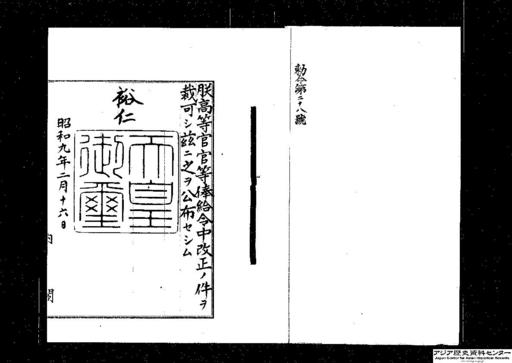 勅令第二十八號
朕高等官官等俸給令中改正ノ件ヲ
裁可シ茲ニ之ヲ公布セシム
裕仁
天皇
御璽
昭和九年二月十六日
内閣
アジア歴史資料センター
Japan Center for Asian Historical Records